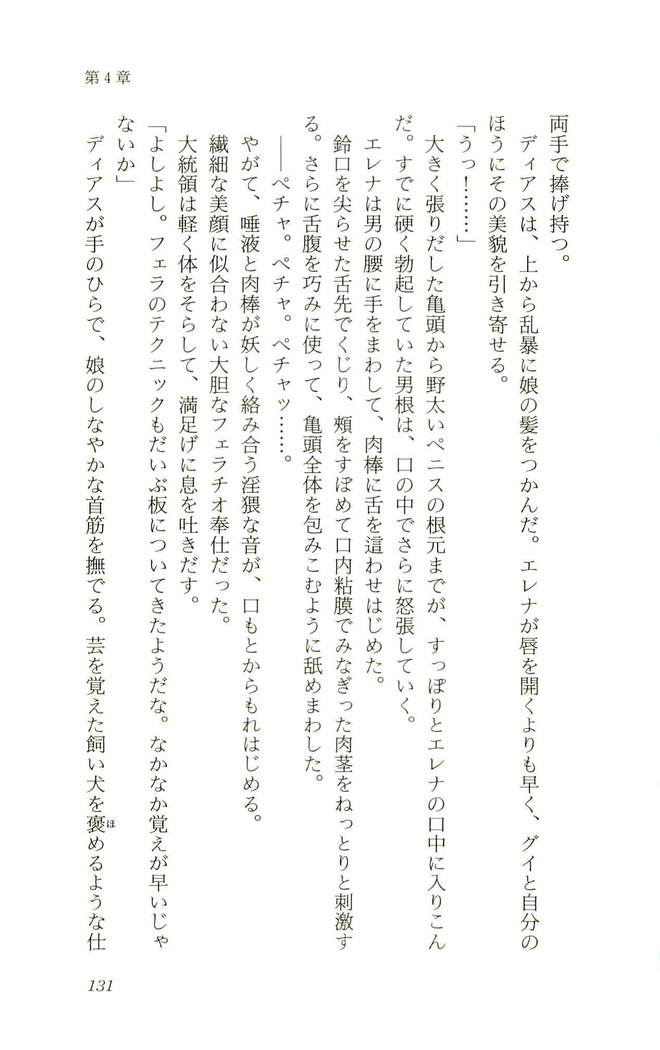 第4章
両手で捧げ持つ。
ディアスは、上から乱暴に娘の髪をつかんだ。エレナが唇を開くよりも早く、グイと自分の
ほうにその美貌を引き寄せる。
「うっ！……」
大きく張りだした亀頭から野太いペニスの根元までが、すっぽりとエレナの口中に入りこん
だ。すでに硬く勃起していた男根は、口の中でさらに怒張していく。
エレナは男の腰に手をまわして、肉棒に舌を這わせはじめた。
鈴口を尖らせた舌先でくじり、頬をすぼめて口内粘膜でみなぎった肉茎をねっとりと刺激す
る。さらに舌腹を巧みに使って、亀頭全体を包みこむように舐めまわした。
――ペチャ。ペチャ。ペチャッ……。
やがて、唾液と肉棒が妖しく絡み合う淫猥な音が、口もとからもれはじめる。
繊細な美顔に似合わない大胆なフェラチオ奉仕だった。
大統領は軽く体をそらして、満足げに息を吐きだす。
「よしよし。フェラのテクニックもだいぶ板についてきたようだな。なかなか覚えが早いじゃ
ないか」
ディアスが手のひらで、娘のしなやかな首筋を撫でる。芸を覚えた飼い犬を褒めるような仕
ほ
131